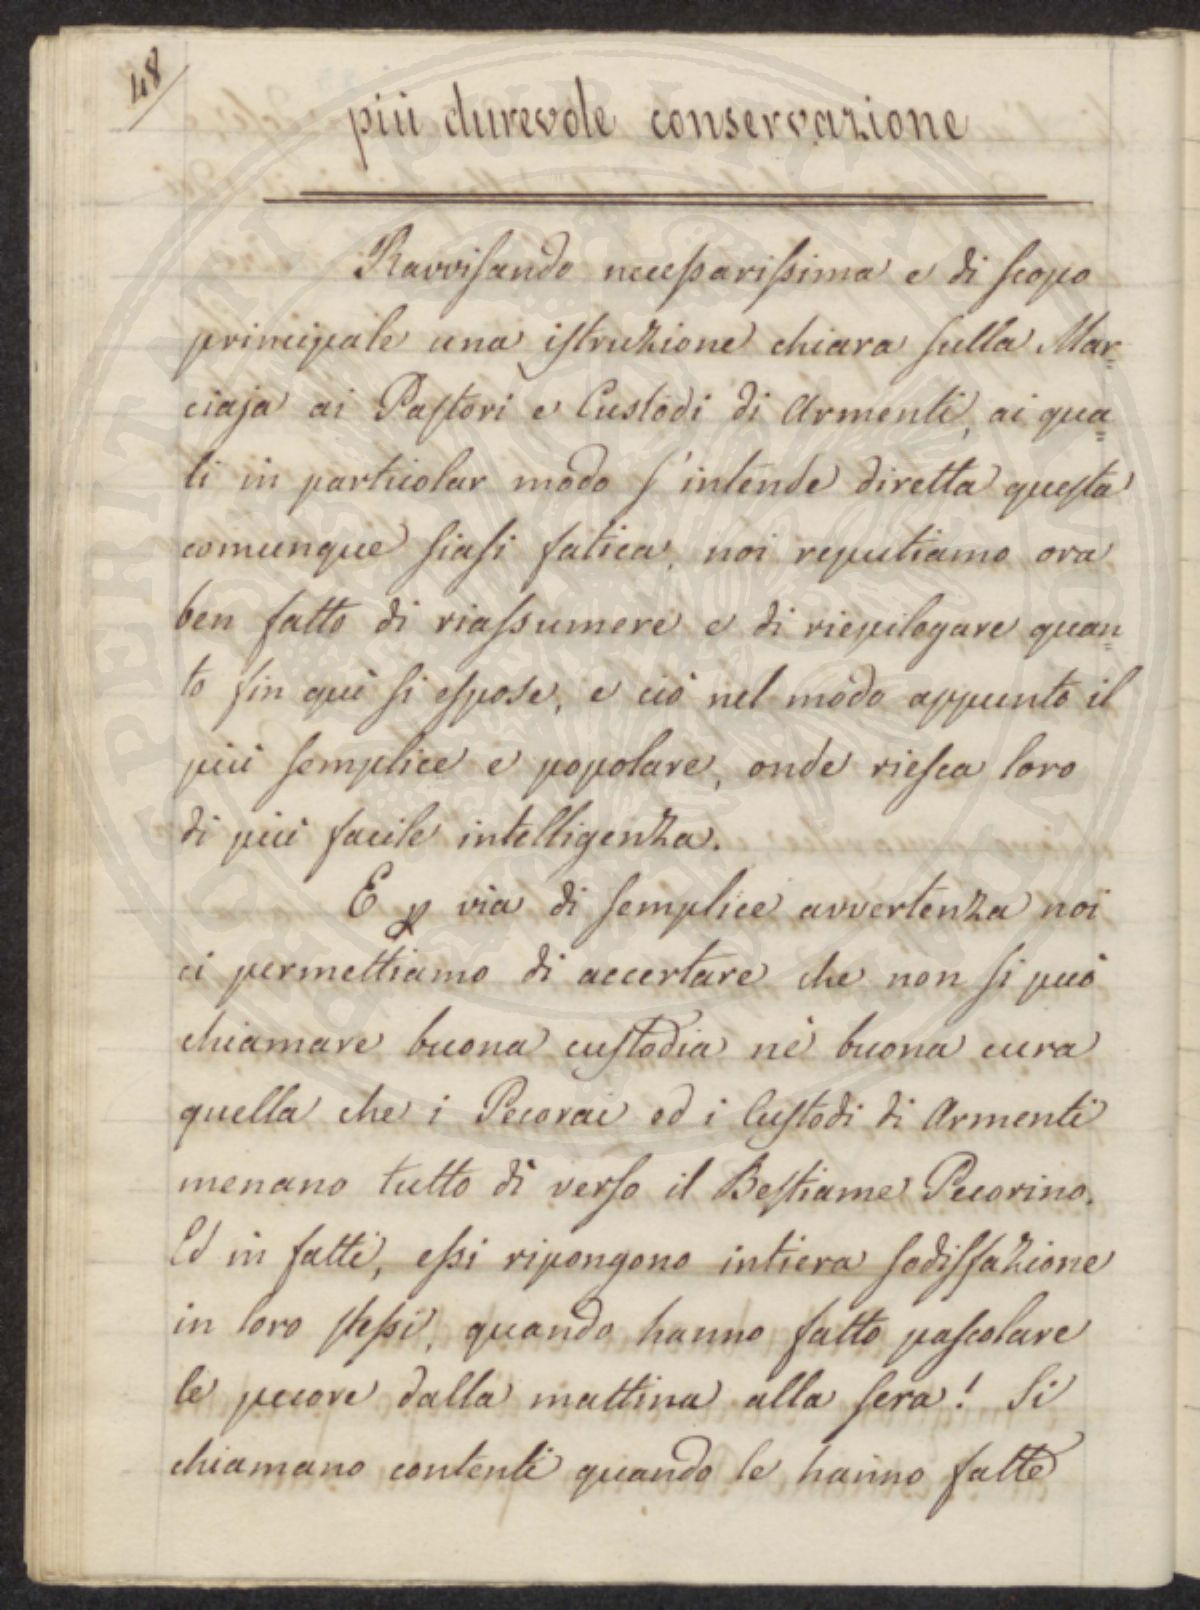 48
più durevole conservazione
Ravvisando necessarissima e di scopo
principale una istruzione chiara sulla Mar=
ciaja ai Pastori e Custodi di Armenti, ai qua=
li in particolar modo s'intende diretta questa
comunque siasi fatica, noi reputiamo ora
ben fatto di riassumere e di riepilogare quan=
to fin quì si espose, e ciò nel modo appunto il
più semplice e popolare, onde riesca loro
di più facile intelligenza.
E p via di semplice avvertenza noi
ci permettiamo di accertare che non si può
chiamare buona custodia nè buona cura
quella che i Pecorai ed i Custodi di Armenti
menano tutto dì verso il Bestiame Pecorino.
Ed in fatti, essi ripongono intiera sodisfazione
in loro stessi, quando hanno fatto pascolare
le pecore dalla mattina alla sera! Si
chiamano contenti quando le hanno fatte